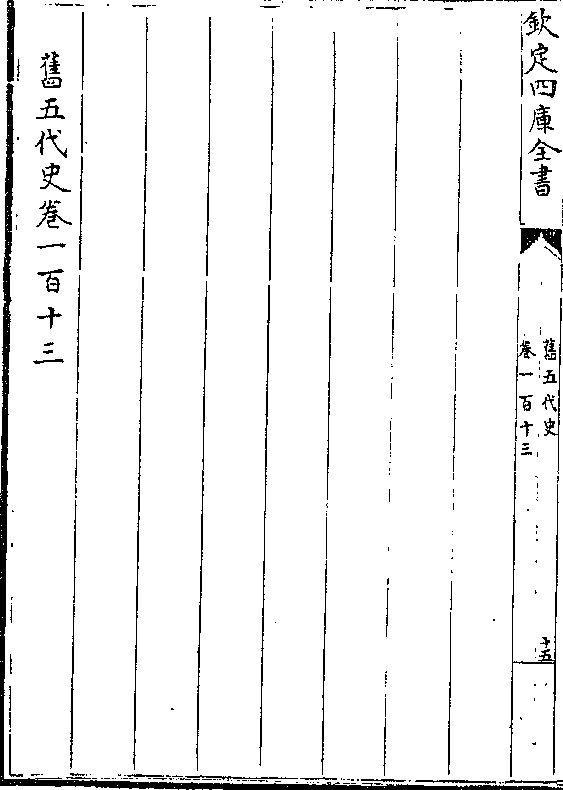 欽定四庫全書
舊五代史
卷一百十三
十五
舊五代史卷一百十三